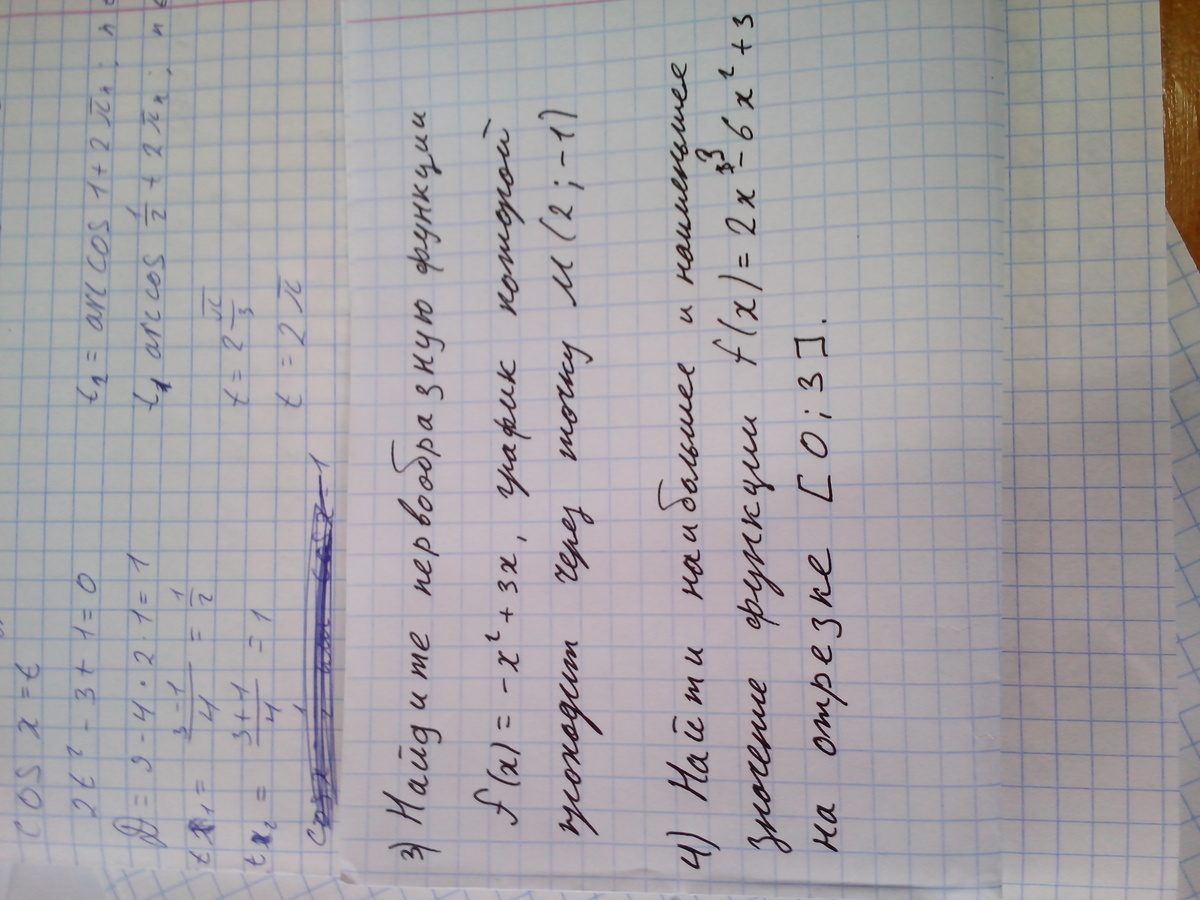 cos x = t
2t² - 3t + 1 = 0
D = 9 - 4 · 2 · 1 = 1
t₁ = (3-1)/4 = 1/2
t₂ = (3+1)/4 = 1
t₂ = arccos 1 + 2πn; n
t₁ arccos 1/2 + 2πn; n
t = 2 π/3
t = 2π
3) Найдите первообразную функции
f(x) = -x² + 3x, график которой
проходит через точку M(2; -1)
4) Найти наибольшее и наименьшее
значение функции f(x) = 2x³ - 6x² + 3
на отрезке [0; 3].